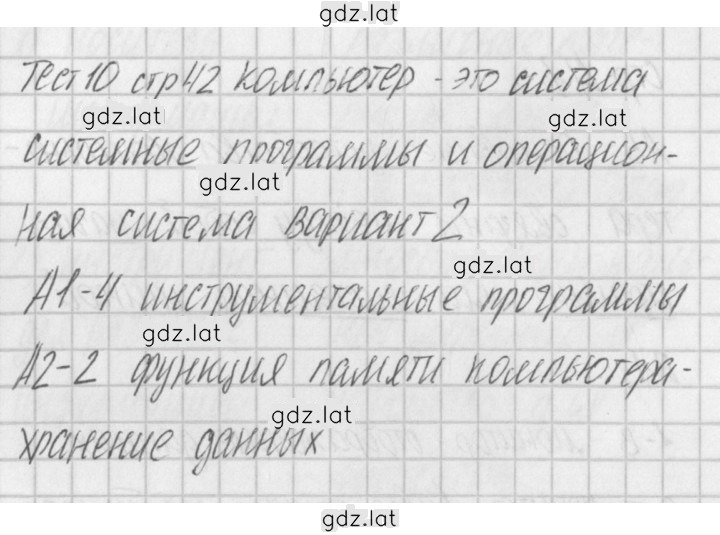 gdz.lat
Тест 10 стр 42 компьютер - это система
gdz.lat
gdz.lat
системные программы и операцион-
gdz.lat
ная система вариант 2
gdz.lat
А1-4 инструментальные программы
gdz.lat
А2-2 функция памяти компьютера-
gdz.lat
хранение данных
gdz.lat